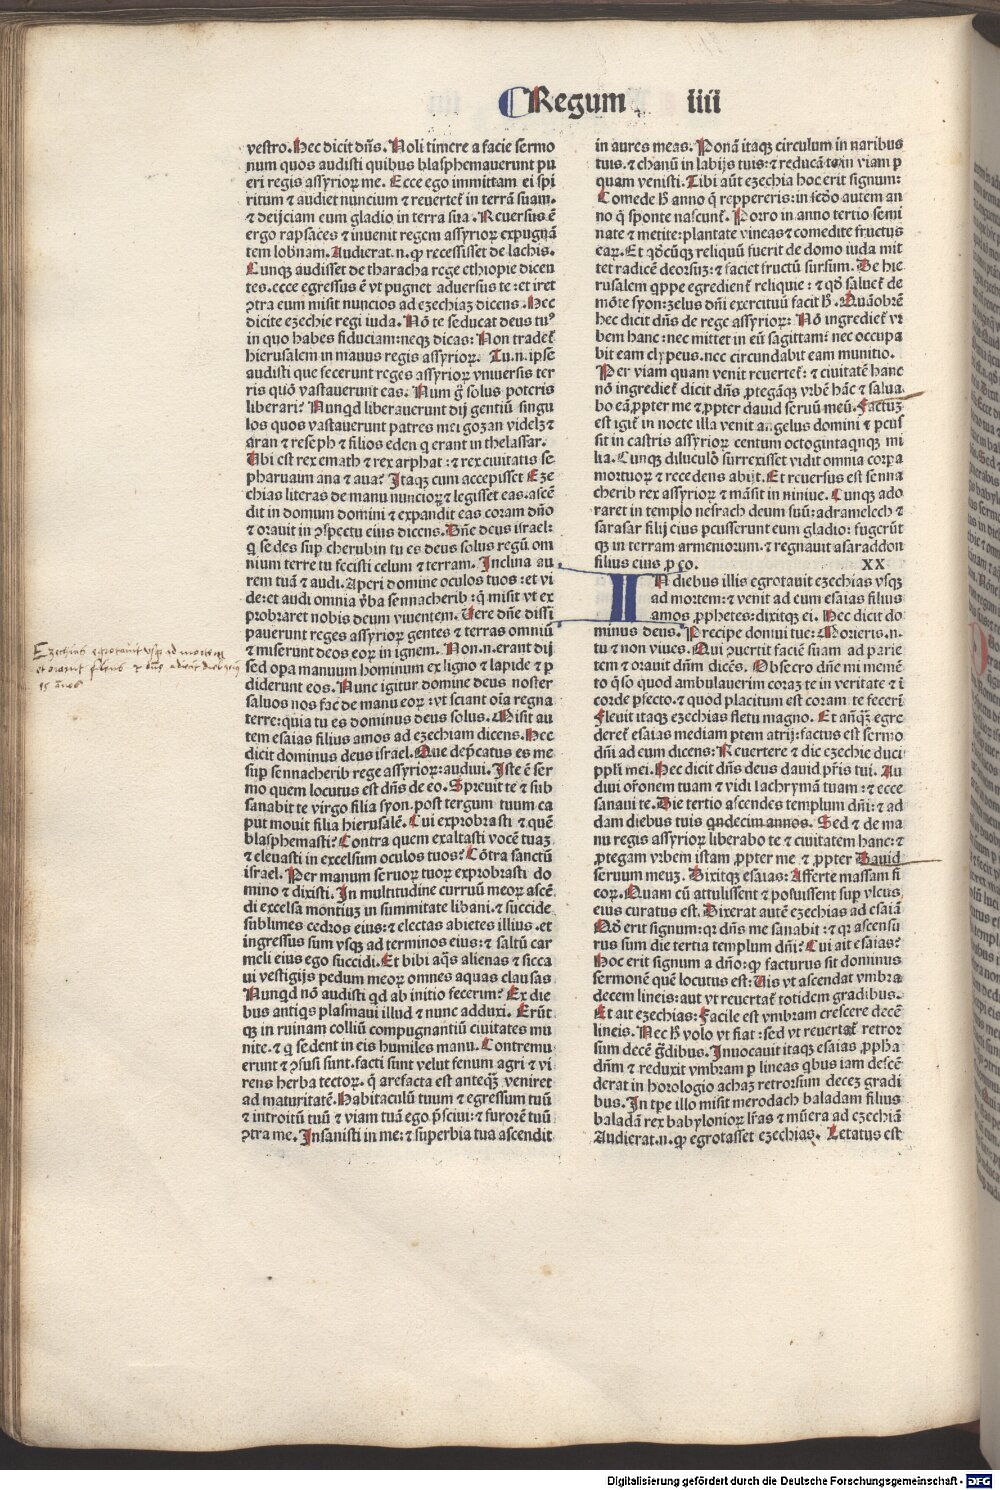 Regum IIII
vestro. Hec dicit dñs. Noli timere a facie sermo
num quos audisti quibus blasphemauerunt pu
eri regis assyrioꝝ me. Ecce ego immittam ei spi
ritum ⁊ audiet nuncium ⁊ reuertet᷑ in terrã suam.
⁊ deijciam eum gladio in terra sua. Reuersus ẽ
ergo rapsaces ⁊ inuenit regem assyrioꝝ expugnã
tem lobnam. Audierat.n.ꝙ recessisset de lachis.
Cunqꝫ audisset de tharacha rege ethiopie dicen
tes. ecce egressus ẽ vt pugnet aduersus te: et iret
ꝯtra eum misit nuncios ad eʒechiaʒ dicens. Hec
dicite eʒechie regi iuda. Nõ te seducat deus tuꝰ
in quo habes fiduciam: neqꝫ dicas: Non tradet᷑
hierusalem in manus regis assyrioꝝ. Tu.n.ipse
audisti que fecerunt reges assyrioꝝ vniuersis ter
ris quõ vastauerunt eas. Num g̃ solus poteris
liberari? Nunqd liberauerunt dij gentiũ singu
los quos vastauerunt patres mei goʒan videlʒ ⁊
aran ⁊ reseph ⁊ filios eden q̃ erant in thelassar.
Ubi est rex emath ⁊ rex arphat: ⁊ rex ciuitatis se
pharuaim ana ⁊ aua? Itaqꝫ cum accepisset Eʒe
chias literas de manu nuncioꝝ ⁊ legisset eas. ascẽ
dit in domum domini ⁊ expandit eas coram dño
⁊ orauit in ꝯspectu eius dicens. Dñe deus israel:
q̃ sedes sup cherubin tu es deus solus regũ om
nium terre tu fecisti celum ⁊ terram. Inclina au
rem tuã ⁊ audi. Aperi domine oculos tuos: et vi
de: et audi omnia v̄ba sennacherib: q̃ misit vt ex
probraret nobis deum viuentem. Uere dñe dissi
pauerunt reges assyrioꝝ gentes ⁊ terras omniũ
⁊ miserunt deos eoꝝ in ignem. Non.n.erant dij
sed opa manuum hominum ex ligno ⁊ lapide ⁊ p
diderunt eos. Nunc igitur domine deus noster
saluos nos fac de manu eoꝝ: vt sciant oĩa regna
terre: quia tu es dominus deus solus. Misit au
tem esaias filius amos ad eʒechiam dicens. Hec
dicit dominus deus israel. Que dep̃catus es me
sup sennacherib rege assyrioꝝ: audiui. Iste ẽ ser
mo quem locutus est dñs de eo. Spreuit te ⁊ sub
sanabit te virgo filia syon. post tergum tuum ca
put mouit filia hierusalẽ. Cui exprobrasti ⁊ quẽ
blasphemasti? Contra quem exaltasti vocẽ tuaʒ
⁊ eleuasti in excelsum oculos tuos? Cõtra sanctũ
israel. Per manum seruoꝝ tuoꝝ exprobrasti do
mino ⁊ dixisti. In multitudine curruũ meoꝝ ascẽ
di excelsa montiuʒ in summitate libani. ⁊ succide
sublimes cedros eius: ⁊ electas abietes illius. et
ingressus sum vsqꝫ ad terminos eius: ⁊ saltũ car
meli eius ego succidi. Et bibi aq̃s alienas ⁊ sicca
ui vestigijs pedum meoꝝ omnes aquas clausas
Nunqd nõ audisti qd ab initio fecerim? Ex die
bus antiqs plasmaui illud ⁊ nunc adduxi. Erũt
qꝫ in ruinam colliũ compugnantiũ ciuitates mu
nite. ⁊ q̃ sedent in eis humiles manu. Contremu
erunt ⁊ ꝯfusi sunt. facti sunt velut fenum agri ⁊ vi
rens herba tectoꝝ. q̃ arefacta est anteqꝫ̃ veniret
ad maturitatẽ. Habitaculũ tuum ⁊ egressum tuũ
⁊ introitũ tuũ ⁊ viam tuã ego p̃sciui: ⁊ furorẽ tuũ
ꝯtra me. Insanisti in me: ⁊ superbia tua ascendit
in aures meas. Ponã itaqꝫ circulum in naribus
tuis. ⁊ chamũ in labijs tuis: ⁊ reducã te in viam p
quam venisti. Tibi aũt eʒechia hoc erit signum:
Comede h̃ anno q̃ reppereris: in secũdo autem an
no q̃ sponte nascunt᷑. Porro in anno tertio semi
nate ⁊ metite: plantate vineas ⁊ comedite fructus
eaꝝ. Et qd̃cũqꝫ reliquũ fuerit de domo iuda mit
tet radicẽ deorsuʒ: ⁊ faciet fructũ sursum. De hie
rusalem qppe egredient᷑ reliquie: ⁊ qd̃ saluet᷑ de
mõte syon: zelus dñi exercituũ faciet h̃. Quãobrẽ
hec dicit dñs de rege assyrioꝝ: Nõ ingrediet᷑ vr
bem hanc: nec mittet in eũ sagittam: nec occupa
bit eam clypeus. nec circundabit eam munitio.
Per viam quam venit reuertet᷑: ⁊ ciuitatẽ hanc
nõ ingrediet᷑ dicit dñs. ꝓtegãqꝫ vrbẽ hãc ⁊ salua
bo eã ꝓpter me ⁊ ꝓpter dauid seruũ meũ. Factuʒ
est igit᷑ in nocte illa venit angelus domini ⁊ pcus
sit in castris assyrioꝝ centum octogintaqnqꝫ mi
lia. Cunqꝫ diluculo surrexisset vidit omnia corpa
mortuoꝝ ⁊ recedens abijt. Et reuersus est senna
cherib rex assyrioꝝ ⁊ mãsit in niniue. Cunqꝫ ado
raret in templo nesrach deum suũ: adramelech ⁊
sarasar filij eius pcusserunt eum gladio: fugerũt
qꝫ in terram armeniorum. ⁊ regnauit asaraddon
filius eius p eo. XX
IN diebus illis egrotauit eʒechias vsqꝫ
ad mortem: ⁊ venit ad eum esaias filius
amos ꝓphetes: dixitqꝫ ei. Hec dicit do
minus deus. Precipe domui tue: Morieris.n.
tu ⁊ non viues. Qui ꝯuertit faciẽ suam ad parie
tem ⁊ orauit dñm dicẽs. Obsecro dñe mi memẽ
to q̃so quod ambulauerim coraʒ te in veritate ⁊ ĩ
corde pfecto. ⁊ quod placitum est coram te fecerĩ
Fleuit itaqꝫ eʒechias fletu magno. Et anq̃ꝫ egre
deret᷑ esaias mediam ptem atrij: factus est sermo
dñi ad eum dicens: Reuertere ⁊ dic eʒechie duci
ppli mei. Hec dicit dñs deus dauid pr̃is tui. Au
diui or̃onem tuam ⁊ vidi lachrymã tuam: ⁊ ecce
sanaui te. Die tertio ascendes templum dñi: ⁊ ad
dam diebus tuis qndecim annos. Sed ⁊ de ma
nu regis assyrioꝝ liberabo te ⁊ ciuitatem hanc: ⁊
ꝓtegam vrbem istam ꝓpter me ⁊ ꝓpter Dauid
seruum meuʒ. Dixitqꝫ esaias: Afferte massam fi
coꝝ. Quam cũ attulissent ⁊ posuissent sup vlcus
eius curatus est. Dixerat autẽ eʒechias ad esaiã
Qd̃ erit signum: qꝛ dñs me sanabit: ⁊ qꝛ ascensu
rus sum die tertia templum dñi? Cui ait esaias?
Hoc erit signum a dño: ꝙ facturus sit dominus
sermonẽ quẽ locutus est: Uis vt ascendat vmbra
decem lineis: aut vt reuertat᷑ totidem gradibus.
Et ait eʒechias: Facile est vmbram crescere decẽ
lineis. Nec h̃ volo vt fiat: sed vt reuertat᷑ retror
sum decẽ g̃dibus. Inuocauit itaqꝫ esaias ꝓpha
dñm ⁊ reduxit vmbram p lineas qbus iam descẽ
derat in horologio achaʒ retrorsum deceʒ gradi
bus. In tpe illo misit merodach baladam filius
baladã rex babylonioꝝ lr̃as ⁊ mũera ad eʒechiã
Audierat.n.ꝙ egrotasset eʒechias. Letatus est
Digitalisierung gefördert durch die Deutsche Forschungsgemeinschaft - DFG